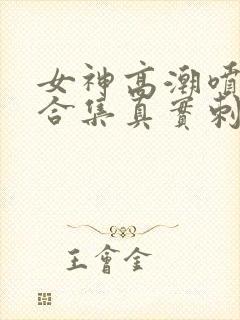 女神高潮噴
合集真實刺
王會金